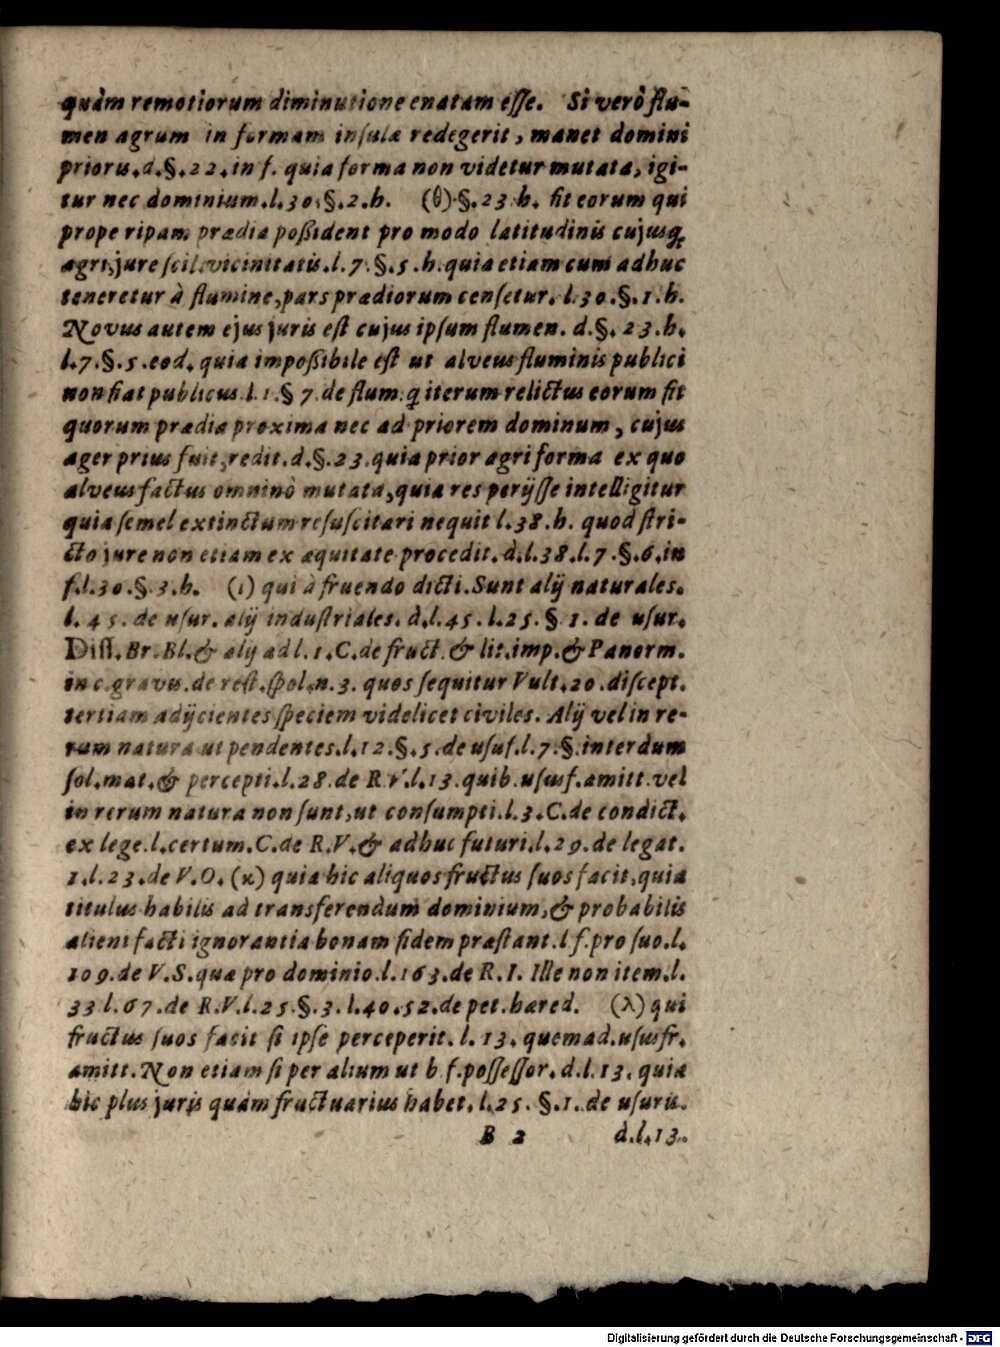 quàm remotiorum diminutione enatam eſſe. Si verò flu-
men agrum in formam inſulæ redegerit, manet domini
prioris. d. §. 22. in f. quia forma non videtur mutata, igi-
tur nec dominium. l. 30. §. 2. h. (θ) §. 23 h. fit eorum qui
prope ripam prædia poßident pro modo latitudinis cujusq;
agri, jure ſcil. vicinitatis. l. 7. §. 5. h. quia etiam cum adhuc
teneretur à flumine, pars prædiorum cenſetur. l. 30. §. 1. h.
Novus autem ejus juris eſt cujus ipſum flumen. d. §. 23. h.
l. 7. §. 5. eod. quia impoßibile eſt ut alveus fluminis publici
non fiat publicus. l. 1. § 7. de flum. q iterum relictus eorum fit
quorum prædia proxima nec ad priorem dominum, cujus
ager prius fuit, redit. d. §. 23. quia prior agri forma ex quo
alveus factus omninò mutata, quia res perijſſe intelligitur
quia ſemel extinctum reſuſcitari nequit l. 38. h. quod ſtri-
cto jure non etiam ex æquitate procedit. d. l. 38. l. 7. §. 6. in
f. l. 30. §. 3. h. (ι) qui à fruendo dicti. Sunt alij naturales.
l. 45. de uſur. alij induſtriales. d. l. 45. l. 25. § 1. de uſur.
Diſſ. Br. Bl. & alij ad l. 1. C. de fruct. & lit. imp. & Panorm.
in c. gravis. de reſt. ſpol. n. 3. quos ſequitur Vult. 20. diſcept.
tertiam adijcientes ſpeciem videlicet civiles. Alij vel in re-
rum natura ut pendentes. l. 12. §. 5. de uſuf. l. 7. §. interdum
ſol. mat. & percepti. l. 28. de R V. l. 13. quib. uſusf. amitt. vel
in rerum natura non ſunt, ut conſumpti. l. 3. C. de condict.
ex lege. l. certum. C. de R. V. & adhuc futuri. l. 29. de legat.
1. l. 23. de V. O. (κ) quia hic aliquos fructus ſuos facit, quia
titulus habilis ad transferendum dominium, & probabilis
alieni facti ignorantia bonam fidem præſtant. l f. pro ſuo. l.
109. de V. S. quæ pro dominio. l. 163. de R. I. Ille non item. l.
33 l. 67. de R. V. l. 25. §. 3. l. 40. 52. de pet. hæred. (λ) qui
fructus ſuos facit ſi ipſe perceperit. l. 13. quemad. uſusfr.
amitt. Non etiam ſi per alium ut b f. poſſeſſor. d. l. 13. quia
hic plus juris quàm fructuarius habet. l. 25. §. 1. de uſuris.
B 2 d. l. 13.
Digitalisierung gefördert durch die Deutsche Forschungsgemeinschaft - DFG